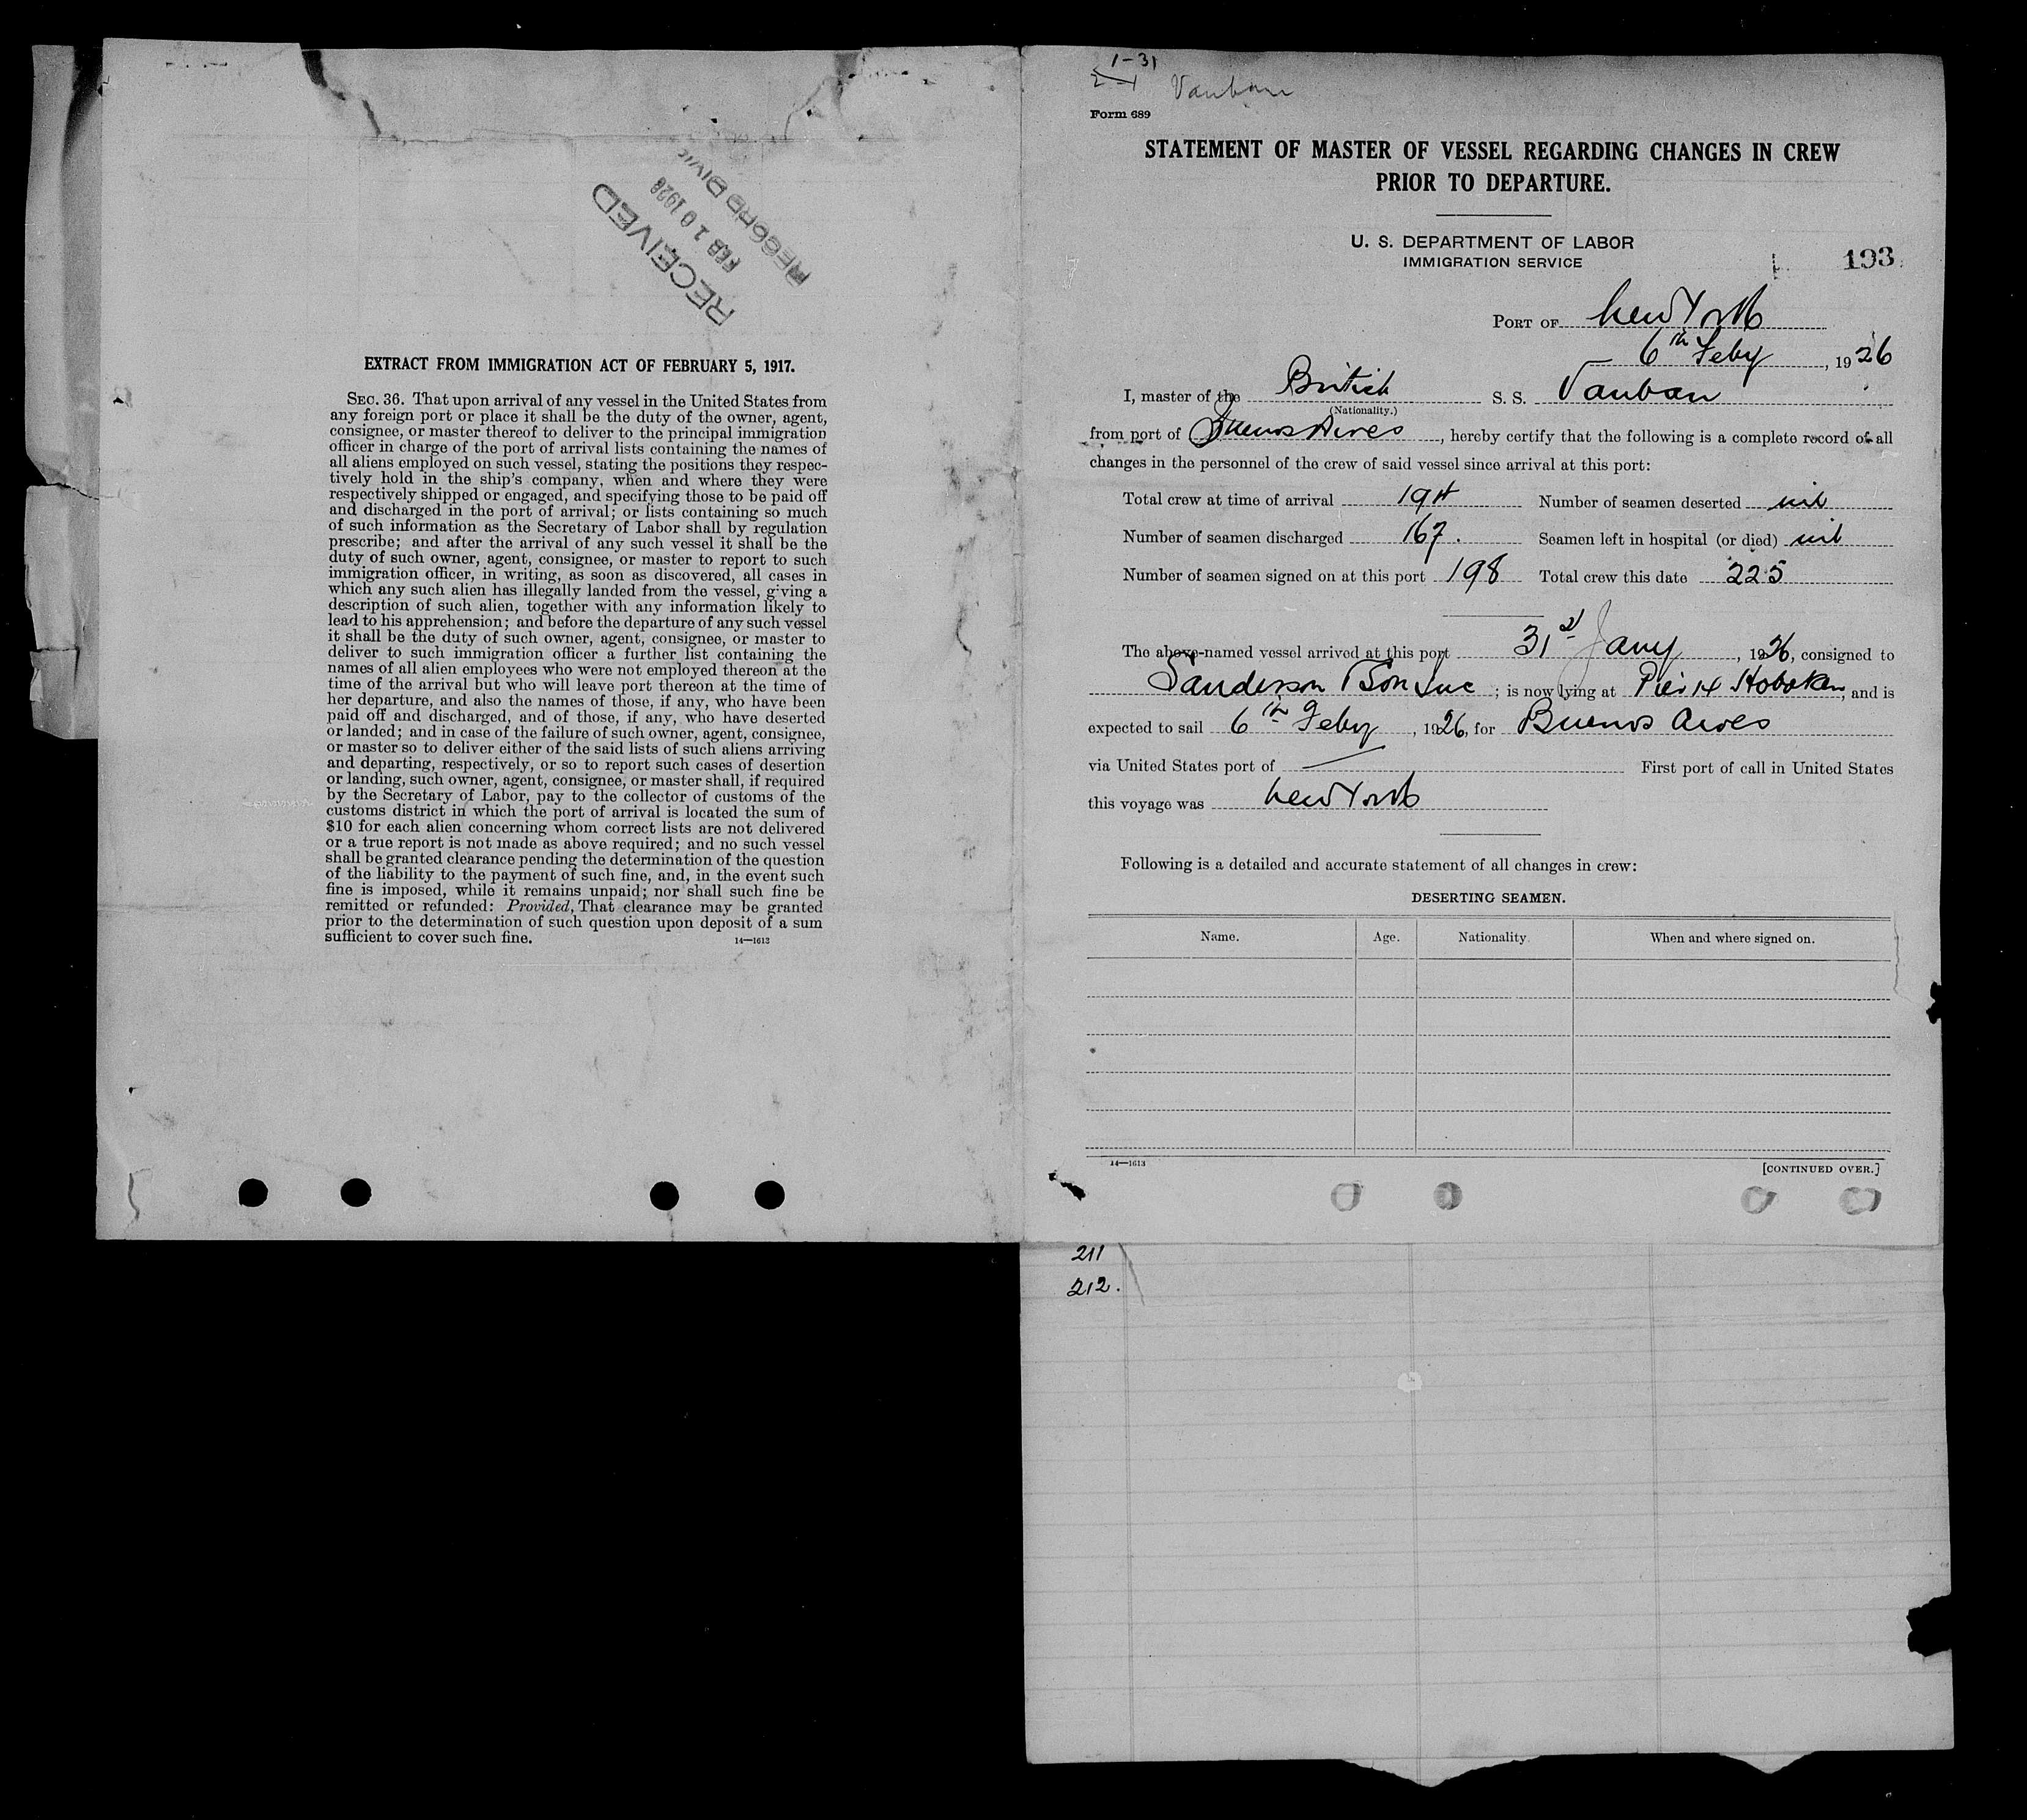 RECEIVED
FEB 10 1926
RECORD DIV.
EXTRACT FROM IMMIGRATION ACT OF FEBRUARY 5, 1917.
SEC. 36. That upon arrival of any vessel in the United States from
any foreign port or place it shall be the duty of the owner, agent,
consignee, or master thereof to deliver to the principal immigration
officer in charge of the port of arrival lists containing the names of
all aliens employed on such vessel, stating the positions they respec-
tively hold in the ship's company, when and where they were
respectively shipped or engaged, and specifying those to be paid off
and discharged in the port of arrival; or lists containing so much
of such information as the Secretary of Labor shall by regulation
prescribe; and after the arrival of any such vessel it shall be the
duty of such owner, agent, consignee, or master to report to such
immigration officer, in writing, as soon as discovered, all cases in
which any such alien has illegally landed from the vessel, giving a
description of such alien, together with any information likely to
lead to his apprehension; and before the departure of any such vessel
it shall be the duty of such owner, agent, consignee, or master to
deliver to such immigration officer a further list containing the
names of all alien employees who were not employed thereon at the
time of the arrival but who will leave port thereon at the time of
her departure, and also the names of those, if any, who have been
paid off and discharged, and of those, if any, who have deserted
or landed; and in case of the failure of such owner, agent, consignee,
or master so to deliver either of the said lists of such aliens arriving
and departing, respectively, or so to report such cases of desertion
or landing, such owner, agent, consignee, or master shall, if required
by the Secretary of Labor, pay to the collector of customs of the
customs district in which the port of arrival is located the sum of
$10 for each alien concerning whom correct lists are not delivered
or a true report is not made as above required; and no such vessel
shall be granted clearance pending the determination of the question
of the liability to the payment of such fine, and, in the event such
fine is imposed, while it remains unpaid; nor shall such fine be
remitted or refunded: Provided, That clearance may be granted
prior to the determination of such question upon deposit of a sum
sufficient to cover such fine. 14—1613
1-31
2-1 Vauban
Form 689
STATEMENT OF MASTER OF VESSEL REGARDING CHANGES IN CREW
PRIOR TO DEPARTURE.
U. S. DEPARTMENT OF LABOR
IMMIGRATION SERVICE
193
PORT OF New York
6th Feby, 1926
I, master of the British S. S. Vauban
(Nationality.)
from port of Buenos Aires, hereby certify that the following is a complete record of all
changes in the personnel of the crew of said vessel since arrival at this port:
Total crew at time of arrival 194 Number of seamen deserted nil
Number of seamen discharged 167. Seamen left in hospital (or died) nil
Number of seamen signed on at this port 198 Total crew this date 225
The above-named vessel arrived at this port 31st Jany, 1926, consigned to
Sanderson & Son Inc; is now lying at Pier 4 Hoboken, and is
expected to sail 6th Feby, 1926, for Buenos Aires
via United States port of — First port of call in United States
this voyage was New York
Following is a detailed and accurate statement of all changes in crew:
DESERTING SEAMEN.
Name. Age. Nationality. When and where signed on.
14—1613 [CONTINUED OVER.]
211
212.